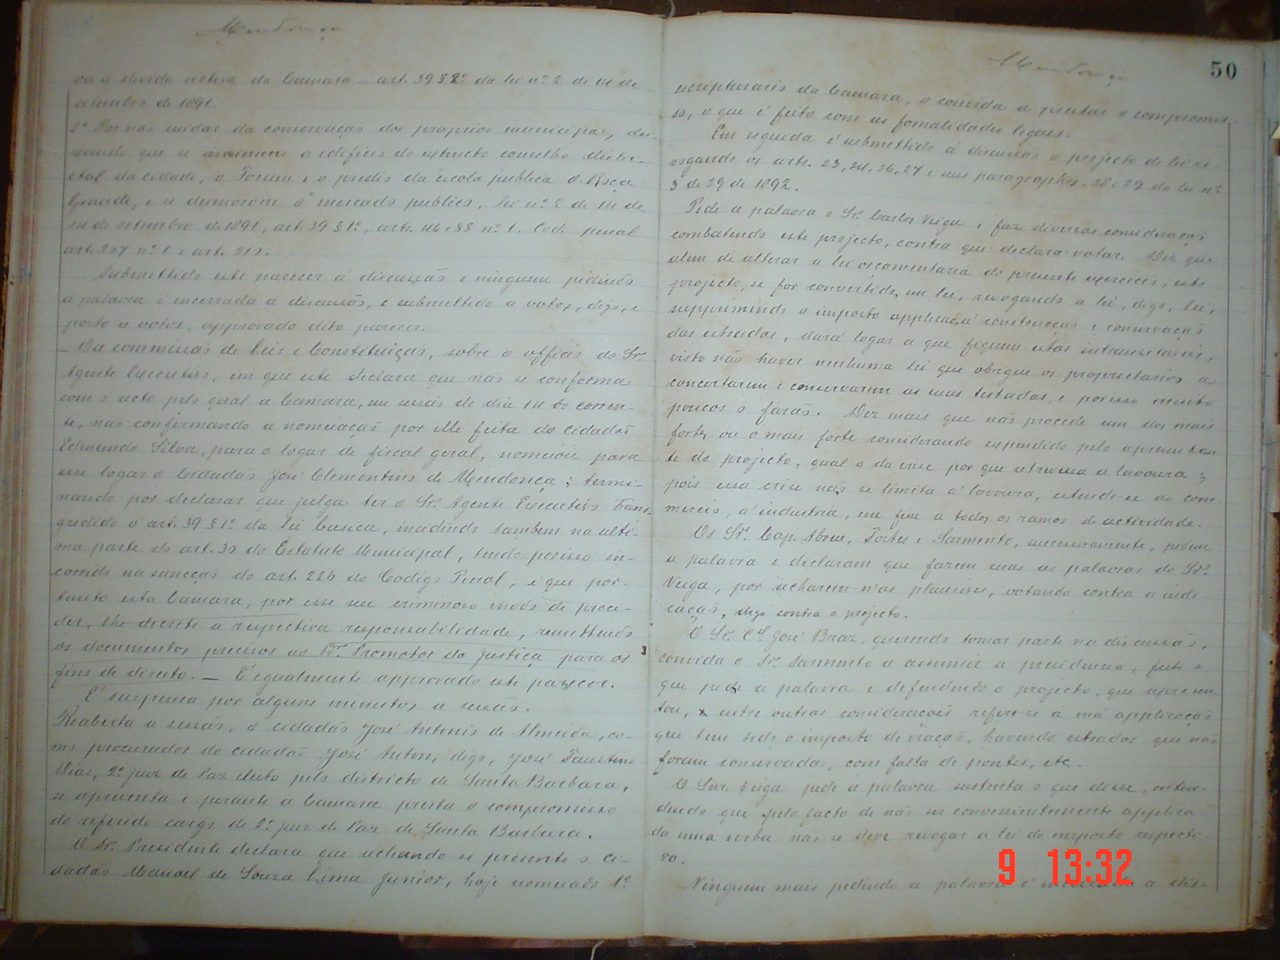 Mendonça
va a devida altura da Camara – art. 39 § 2º da lei nº 2 de 14 de
setembro de 1891.
2º Por não cuidar da conservação dos proprios municipaes, dei-
xando que se arruinem o edificio do extincto conselho distri-
ctal da cidade, o Forum e o predio da escola publica d
Grande, e a desmorone o mercado publico, lei nº 2 de 14 de
de setembro de 1891, art. 39 § 1º, arts. 46 e 88 nº 1. Cod. penal
art. 207 nº 1 e art. 210.
Submettido este parecer á discussão e ninguem pedindo
a palavra é encerrada a discussão, e submettido a votos, digo, e
posto a votos, approvado dito parecer.
– Da commissão de Leis e Constituição, sobre o officio do Sr.
Agente Executivo, em que este declara que não se conforma
com o acto pelo qual a Camara, em sessão do dia 14 do corren-
te, não confirmando a nomeação por elle feita do cidadão
Edmundo Silva, para o logar de fiscal geral, nomeiou para
esse logar o cidadão José Clementino de Mendonça; termi-
nando por declarar que julga ter o Sr. Agente Executivo trans-
gredido o art. 39 § 1º da lei basica, incidindo tambem na ulti-
ma parte do art. 30 do Estatuto Municipal, tendo porisso in-
corrido na sancção do art. 226 do Codigo Penal; e que por-
tanto esta Camara, por esse seu criminoso modo de proce-
der, lhe decrete a respectiva responsabilidade, remettendo
os documentos precisos ao Dr. Promotor da Justiça para os
fins de direito. — É egualmente approvado este parecer.
É suspensa por alguns minutos a sessão.
Reaberta a sessão, o cidadão José Antonio de Almeida, co-
mo procurador do cidadão José Anton, digo, José Faustino
Dias, 2º juiz de Paz eleito pelo districto de Santa Barbara,
se apresenta e perante a Camara presta o compromisso
do referido cargo de 2º juiz de Paz de Santa Barbara.
O Sr. Presidente declara que achando-se presente o ci-
dadão Manoel de Souza Lima Junior, hoje nomeado 1º
Mendonça
50
escripturario da Camara, o convida a prestar o compromis-
so, o que é feito com as fomalidades legaes.
Em seguida é submettido á discussão o projecto de lei re-
vogando os arts. 23, 24, 26, 27 e seus paragraphos, 28 e 29 da lei nº
3 de 29 de 1892.
Pede a palavra o Sr. Carlos Veiga e faz diversas considerações
combatendo este projecto, contra que declara votar. Diz que
alem de alterar a lei orcamentaria do presente exercicio, este
projecto, se for convertido em lei, revogando a lei, digo, lei,
supprimindo o imposto applicado á construcção e conservação
das estradas, dará logar a que fiquem estas intransitaveis,
visto não haver nenhuma lei que obrigue os proprietarios a
concertarem e conservarem as suas testadas, e porisso muito
poucos o farão. Diz mais que não procede um dos mais
fortes ou o mais forte considerando expendido pelo apresentan-
te do projecto, qual o da crise por que atravessa a lavoura;
pois essa crise não se limita á lavoura, estende-se ao com-
mercio, á industria, em fim a todos os ramos de actividade.
Os Srs. Cap. Abreu, Fortes e Sarmento, successivamente, pedem
a palavra e declaram que fazem suas as palavras do Sr.
Veiga, por acharem n'as plausiveis, votando contra a indi-
cação, digo contra o projecto.
O Sr. Cel. José Braz, querendo tomar parte na discussão,
convida o Sr. Sarmento a assumir a presidencia, feito o
que pede a palavra e defendendo o projecto, que apresen-
tou, entre outras consideracoes refere-se á má applicação
que tem tido o imposto de viação, havendo estradas que não
foram conservadas, com falta de pontes, etc.
O Snr. Veiga pede a palavra sustenta o que disse, enten-
dendo que pelo facto de não ser convenientemente applica-
da uma verba não se deve revogar a lei do imposto respecti-
vo.
Ninguem mais pedindo a palavra é encerrada a dis-
9 13:32